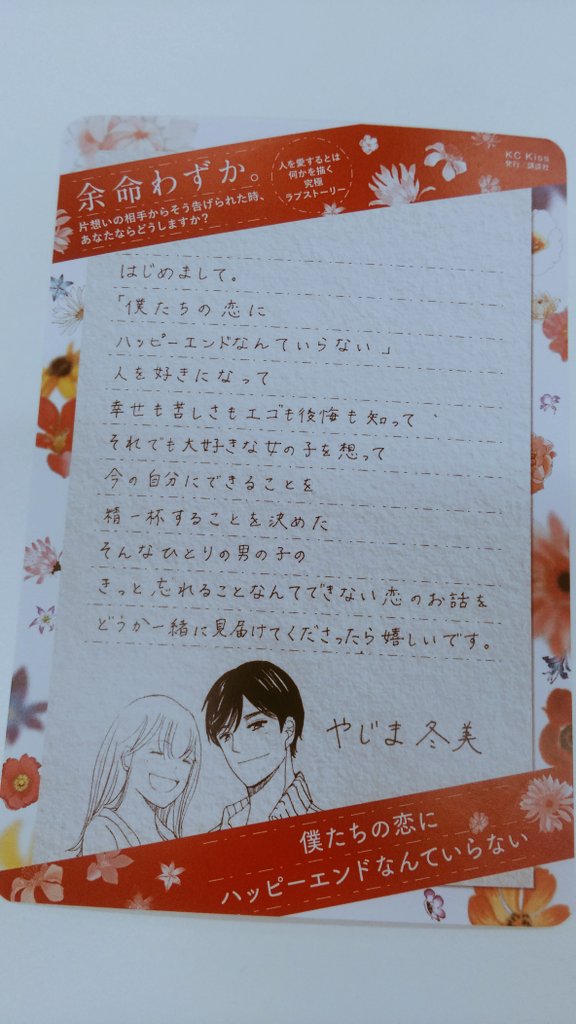 余命わずか。
片想いの相手からそう告げられた時、
あなたならどうしますか？
人を愛するとは
何かを描く
究極
ラブストーリー
KC Kiss
発行／講談社
はじめまして。
「僕たちの恋に
ハッピーエンドなんていらない」
人を好きになって
幸せも苦しさもエゴも後悔も知って、
それでも大好きな女の子を想って
今の自分にできることを
精一杯することを決めた
そんなひとりの男の子の
きっと忘れることなんてできない恋のお話を
どうか一緒に見届けてくださったら嬉しいです。
やじま冬美
僕たちの恋に
ハッピーエンドなんていらない